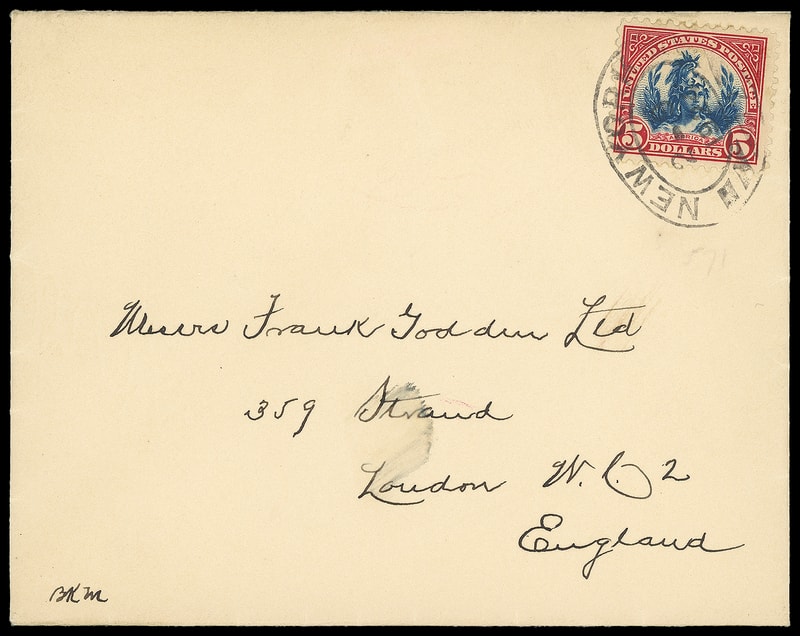 UNITED STATES POSTAGE
AMERICA
5 DOLLARS 5
NEW YORK
Messrs Frank Godden Ltd
359 Strand
London W.C. 2
England
BKM